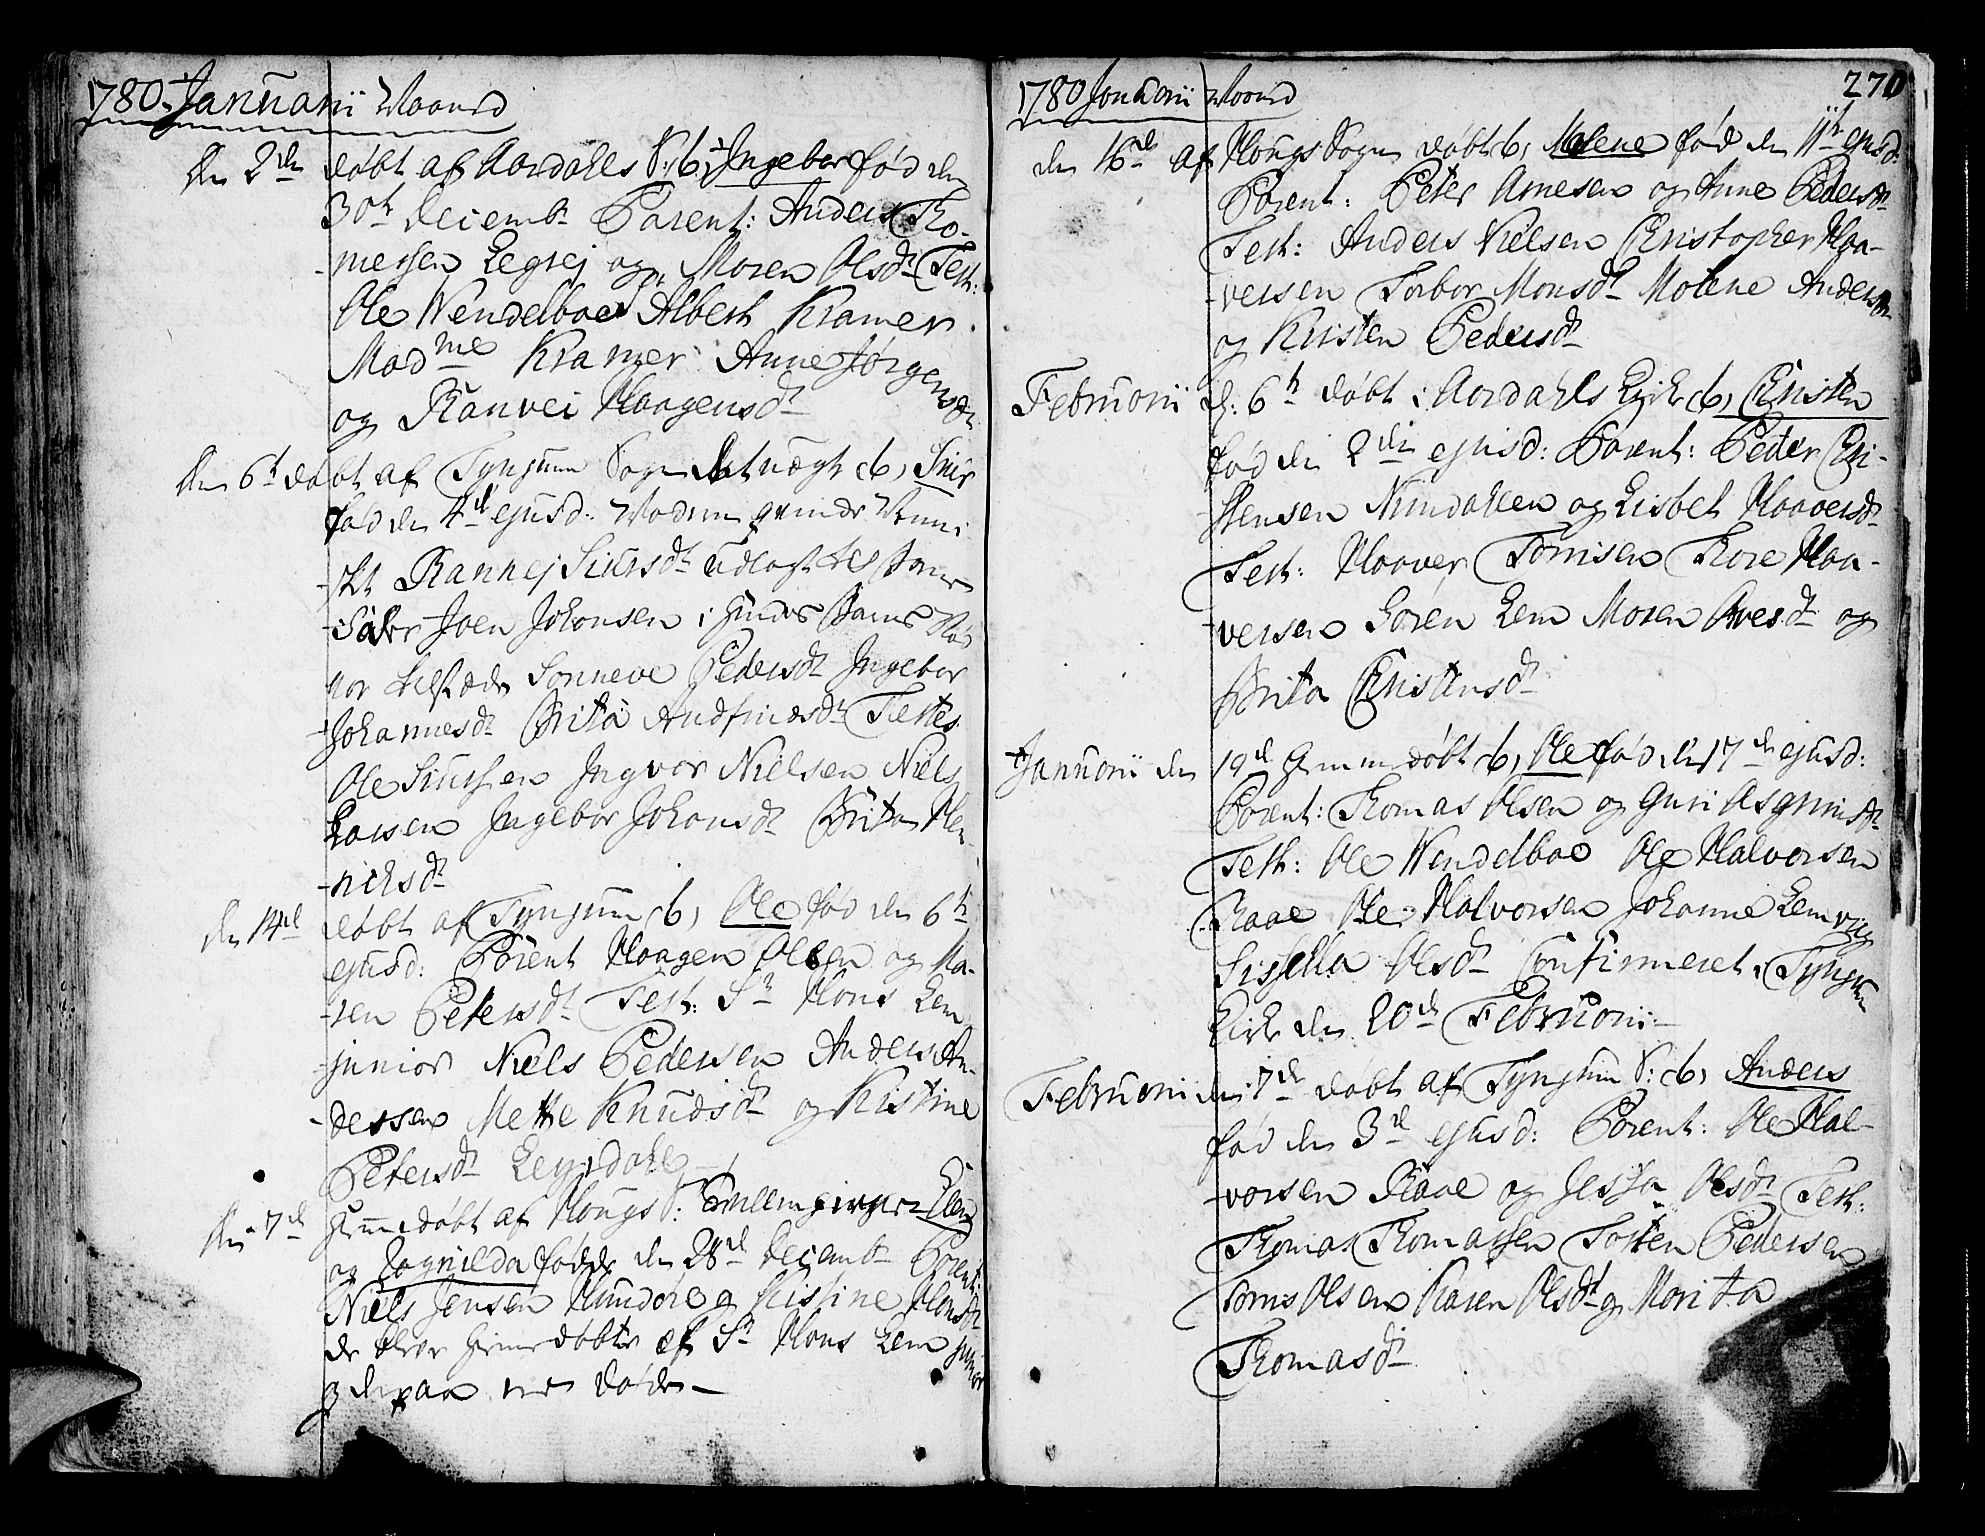 1780. Januarii Maaned
den 2den døbt af Aardahls S: b, Ingebor fød den
30te Decemb. Parent: Anders Tho-
-messen Legrej og Maren Olsdr Test:
Ole Wendelboe Albert Kramer
Madme Kramer Anne Jørgensdr
og Ranvei Haagensdr
den 6t døbt af Tyngum Sogn et uægte b, Siur
fød den 4d ejusd: Moderen
Rannej Siursdr udlagt til Barne
Joen Johansen i hendes Barns
Sonneve Pedersdr Ingebor
Johannesdr Brita Andfindsdr Testes
Ole Siursen Ingvor Nielsen Niels
Larsen Ingebor Johansdr Brita Hen-
-richsdr
den 14de døbt af Tyngum b, Ole fød den 6te
ejusd: Parent Haagen Olsen og Ma-
-ren Petersdr Test: Sr Hans Lem
junior Niels Pedersen Anders An-
dersen Mette Knudsdr og Kistine
Petersdr Legrdahl
den 7de hiemedøbt af Hougs S: Tvillem Elen
og Ragnilda fødde den 28de Decemb. Parent:
Niels Jensen og Kistine Hansdr
de bleve hiemedøbte af Sr Hans Lem junior
og døde
1780 Januarii Maaned 270
den 16de af Hougs Sogn døbt b, Malene fød den 11te ejusd:
Parent: Peter Arnesen og Anne Pedersdr
Test: Anders Nielsen Christopher Haa-
-versen Torbor Monsdr Malene Andersdr
og Kristen Pedersdr
Februarii d: 6te døbt i Aardahls Kirke b, Christen
fød den 2den ejusd: Parent: Peder Chri-
stensen Nundahlen og Lisbet Haaversdr
Test: Haaver Tomisen Thore Haa-
-versen Søren Lem Maren Avesdr og
Brita Christensdr
Januarii den 19de hiemmedøbt b, Ole fød den 17de ejusd:
Parent: Thomas Olsen og Guri Asgrimsdr
Test: Ole Wendelboe Ole Halvorsen
Raae Ole Halvorsen Johanne Lemvig
Sissella Olsdr Confirmeret i Tyngum
Kirke den 20de Februarii
Februarii den 7de døbt af Tyngum S: b, Anders
fød den 3de ejusd: Parent: Ole Hal-
-vorsen Raae og Jessa Olsdr Test:
Thomas Thomassen Tosten Pedersen
Tøms Olsen Karen Olsdr og Marita
Thomasdr